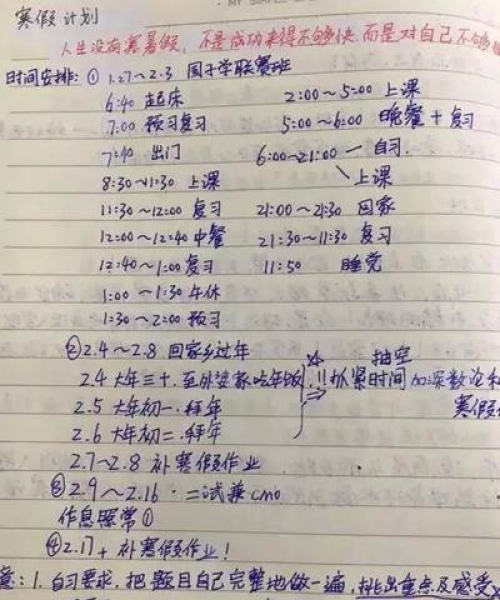 寒假计划
人生没有寒暑假，不是成功来得不够快，而是对自己不够
时间安排：① 1.27～2.3 国子学联赛班
6:40 起床 2:00～5:00 上课
7:00 预习复习 5:00～6:00 晚餐＋复习
7:40 出门 6:00～21:00 一 自习．
8:30～11:30 上课 ＼上课
11:30～12:00 复习 21:00～21:30 回家
12:00～12:40 中餐 21:30～11:30 复习
12:40～1:00 复习 11:50 睡觉
1:00～1:30 午休
1:30～2:00 预习
②2.4～2.8 回家乡过年 ☆ 抽空
2.4 大年三十．至外婆家吃年饭 !! 抓紧时间加深数论和
2.5 大年初一．拜年 ⇒ 寒假
2.6 大年初二．拜年
2.7～2.8 补寒假作业
③2.9～2.16．二试兼cmo
作息照常①
④2.17＋ 补寒假作业！
意：1．自习要求．把题目自己完整地做一遍，挑出重点及感受